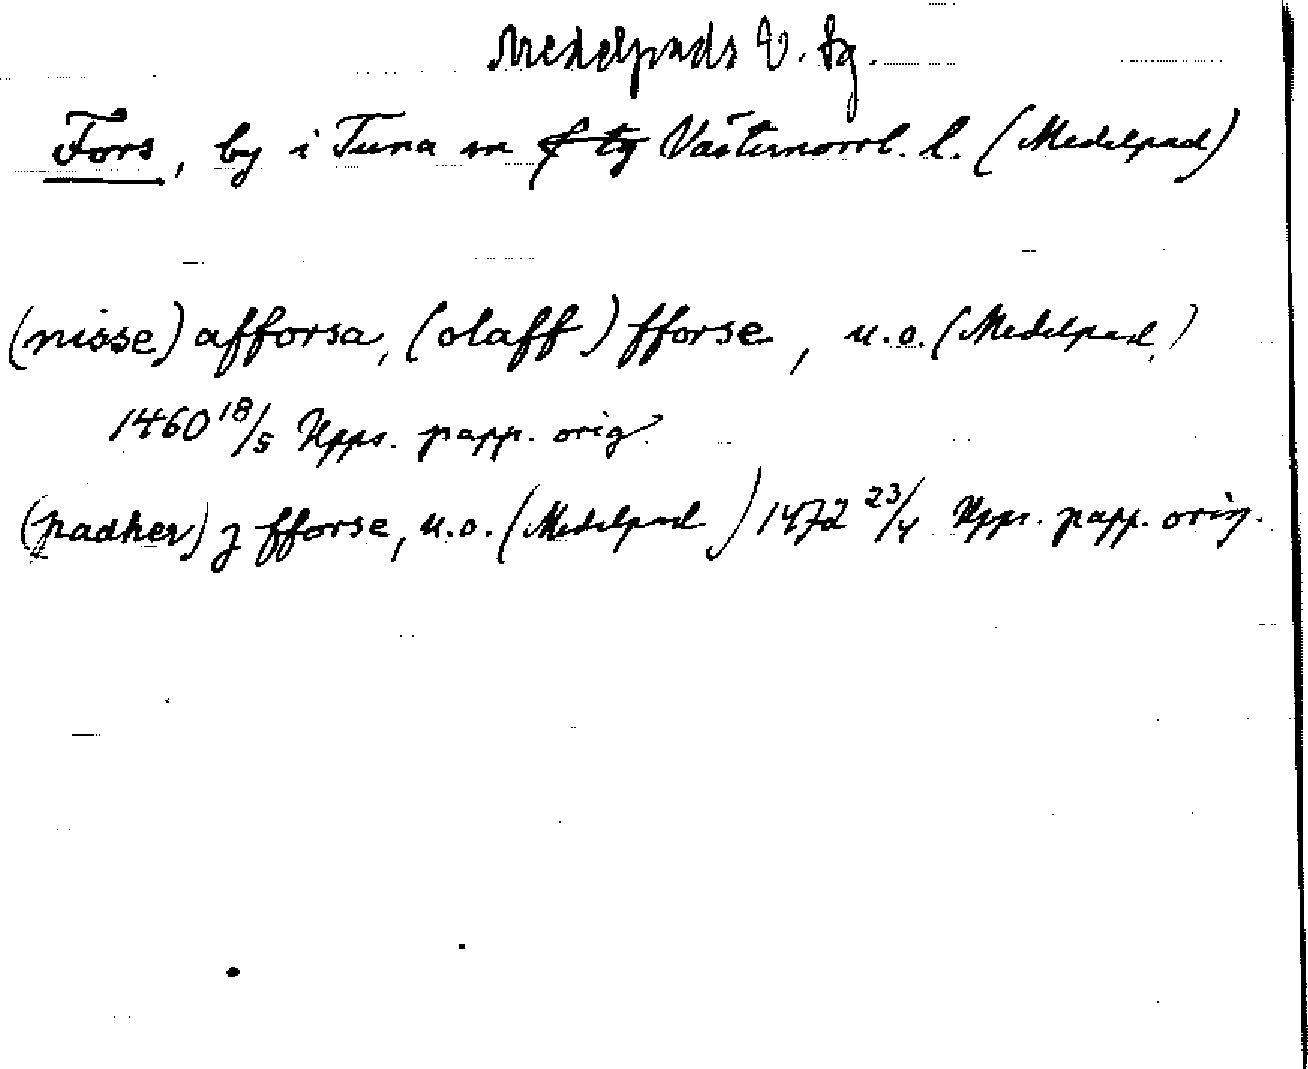 Medelpads V. tg.
Fors, by i Tuna sn f tg Västernorrl. l. (Medelpad)
(nisse) afforsa, (olaff) fforse, u.o. (Medelpad)
1460 18/5 Upps. papp. orig.
(padher) j fforse, u.o. (Medelpad) 1472 23/4 Upps. papp. orig.